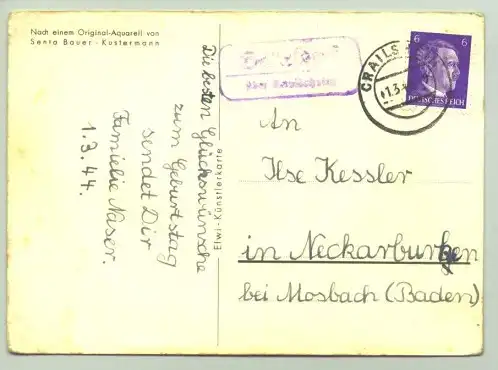 Nach einem Original-Aquarell von
Senta Bauer - Kustermann
Die besten Glückswünsche
zum Geburtstag
sendet Dir
Familie Naser.
1.3.44.
Elwi-Künstlerkarte
über
CRAILS
1.3.
6 6
DEUTSCHES REICH
An
Ilse Kessler
in Neckarburken
bei Mosbach (Baden)